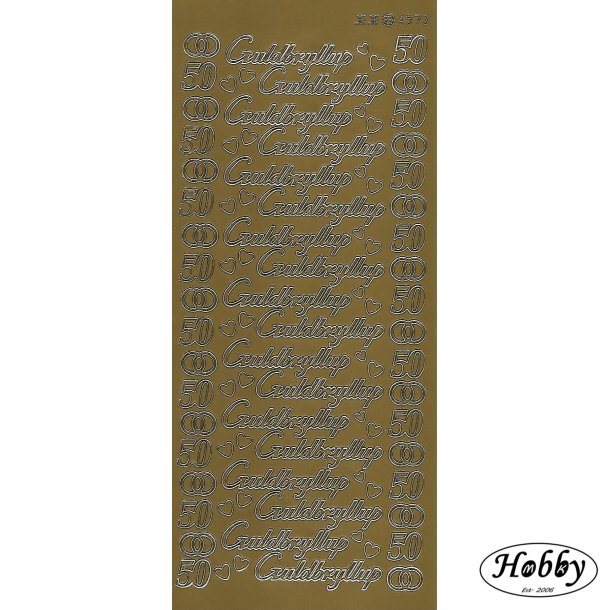 4573
Guldbryllup 50
50 Guldbryllup
Guldbryllup 50
50 Guldbryllup
Guldbryllup 50
50 Guldbryllup
Guldbryllup 50
50 Guldbryllup
Guldbryllup 50
50 Guldbryllup
Guldbryllup 50
50 Guldbryllup
Guldbryllup 50
50 Guldbryllup
Guldbryllup 50
50 Guldbryllup
Guldbryllup 50
50 Guldbryllup
Hobby
Est- 2006